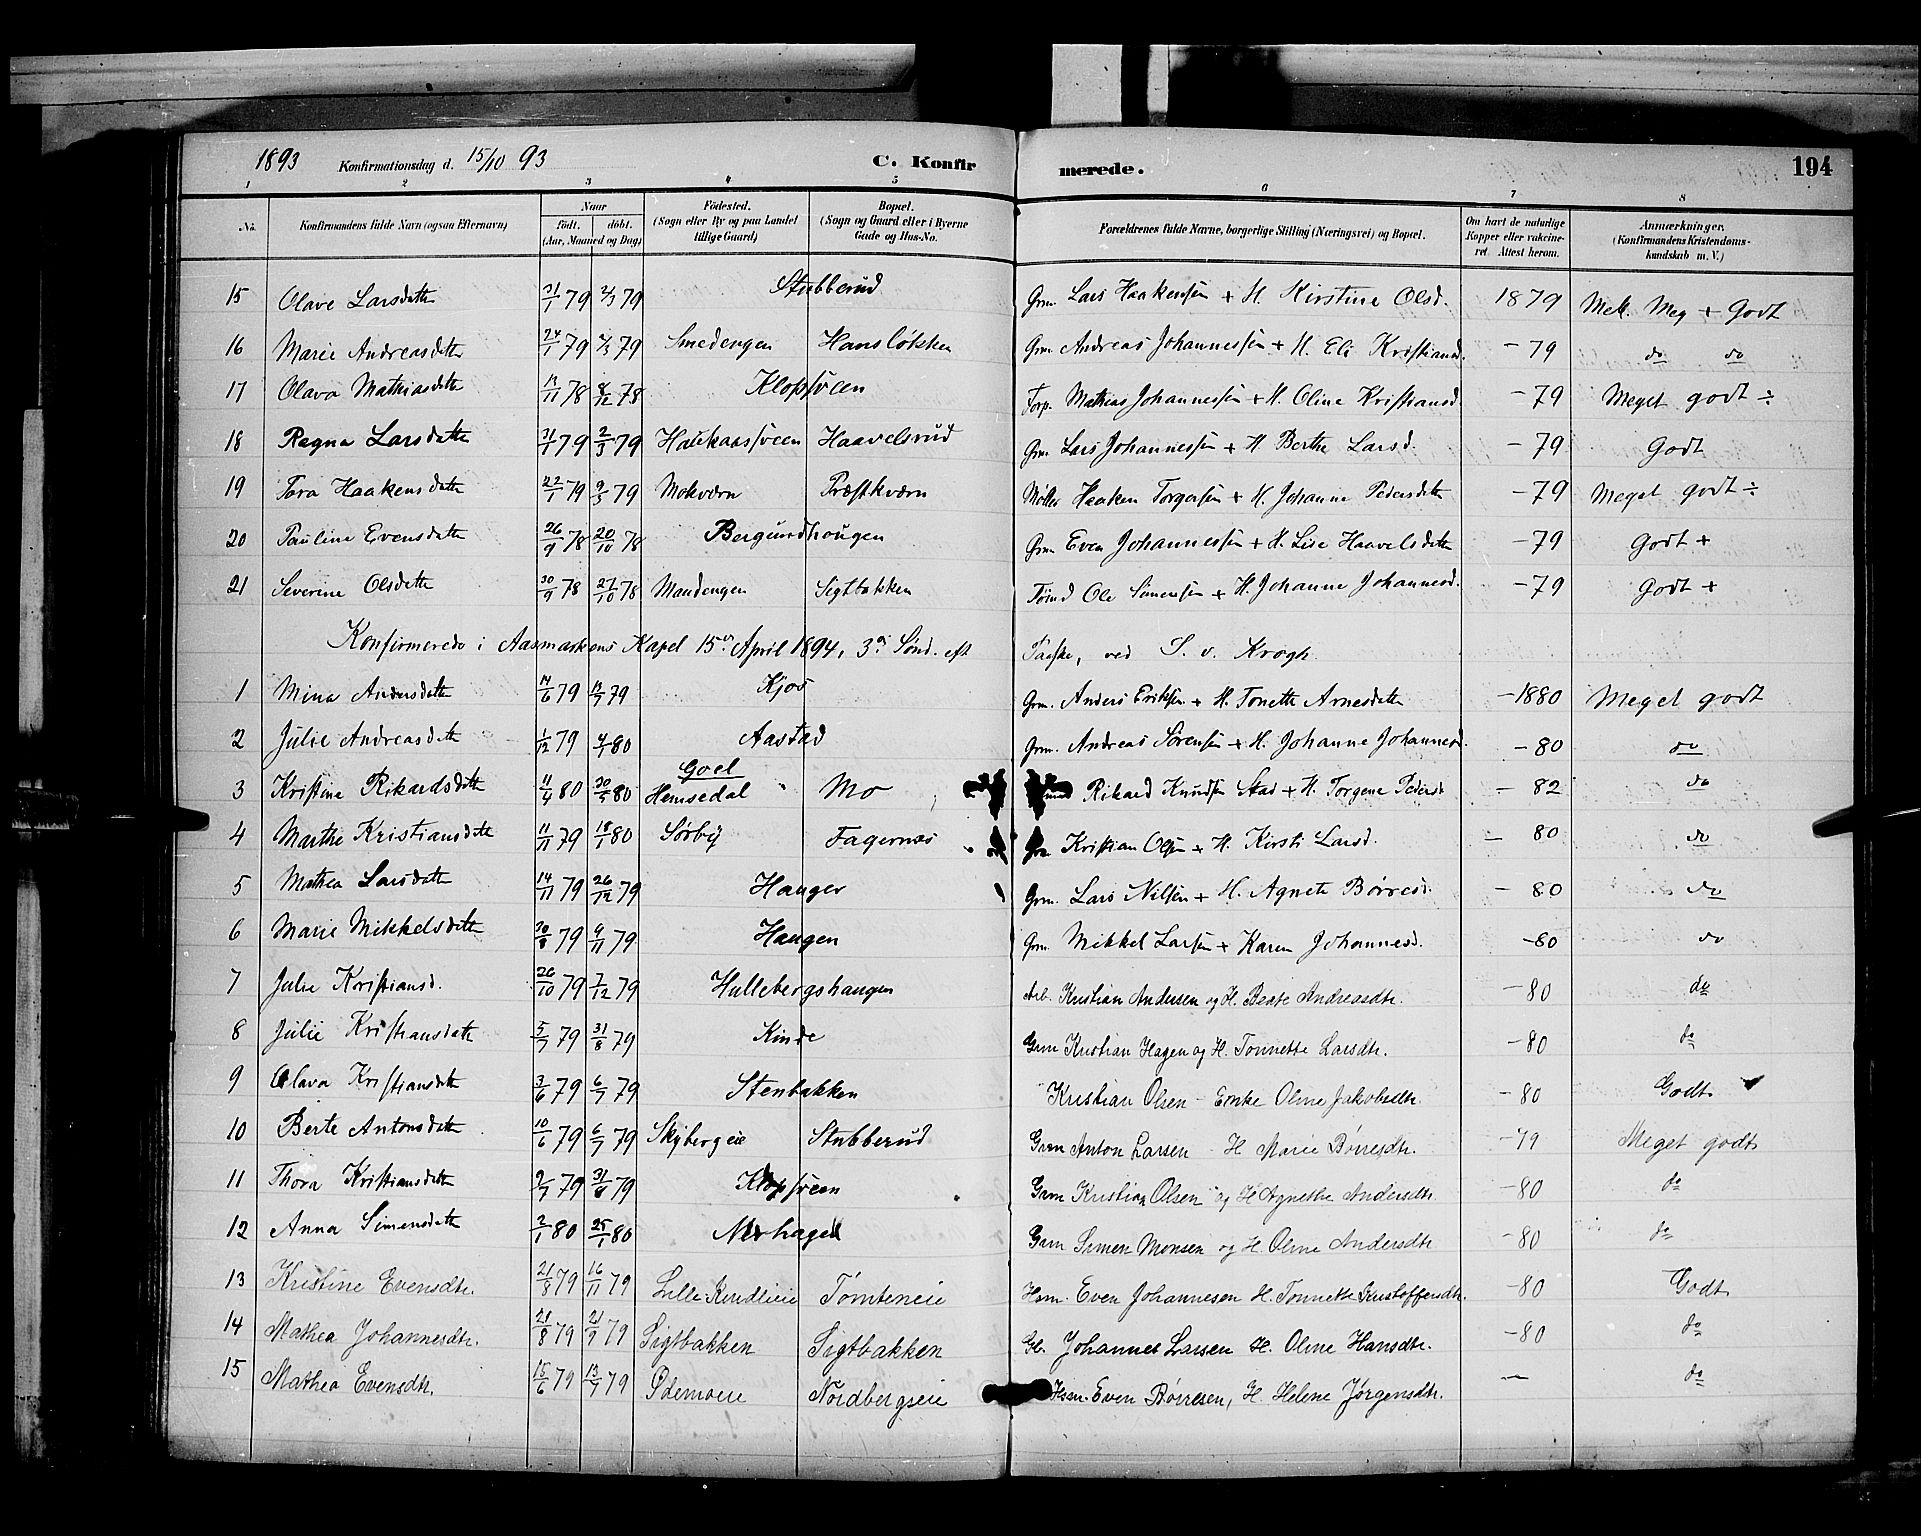 1893 Konfirmationsdag d. 15/10 93 C. Konfirmerede. 194
1 2 3 4 5 6 7 8
No. Konfirmandens fulde Navn (ogsaa Efternavn) Naar födt. döbt. (Aar, Maaned og Dag) Födested. (Sogn eller By og paa Landet tillige Gaard) Bopæl. (Sogn og Gaard eller i Byerne Gade og Hus-No. Forældrenes fulde Navne, borgerlige Stilling (Næringsvei) og Bopæl. Om havt de naturlige Kopper eller vakcineret Attest herom. Anmærkninger. (Konfirmandens Kristendomskundskab m. V.)
15 Olave Larsdatter 31/1 79 2/3 79 Stubberud Grm. Lars Haakensen + H. Kirstine Olsd. 1879 Mell. Meg + Godt
16 Marie Andreasdatter 24/1 79 2/3 79 Smedengen Hansløkken Grm Andreas Johannessen + H. Eli Kristiansd. - 79 do do
17 Olava Mathiasdatter 13/11 78 8/12 78 Klopsveen Torp. Mathias Johannessen + H. Oline Kristiansd. - 79 Meget godt ÷
18 Ragna Larsdatter 31/1 79 2/3 79 Haukaassveen Haavelsrud Grm. Lars Johannessen + H Berthe Larsd. - 79 Godt
19 Tora Haakensdatter 22/1 79 9/3 79 Mokværn Præstkværn Møller Haaken Torgersen + H. Johanne Pedersdatter - 79 Meget godt ÷
20 Pauline Evensdatter 26/9 78 20/10 78 Bergundhougen Grm Even Johannessen + H. Lise Haavelsdatter - 79 Godt +
21 Severine Olsdatter 30/9 78 27/10 78 Maudengen Sigtbakken Ole Simensen + H. Johanne Johannesd. - 79 Godt +
Konfirmerede i Aasmarkens Kapel 15de April 1894, 3die Sønd. eft. Paaske, ved S. v. Krogh.
1 Mina Andersdatter 14/6 79 13/7 79 Kjos Grm. Anders Eriksen + H. Tonette Arnesdatter - 1880 Meget godt
2 Julie Andreasdatter 1/12 79 4/1 80 Aastad Grm. Andreas Sørensen + H. Johanne Johannesd. - 80 do
3 Kristine Rikardsdatter 11/4 80 30/5 80 Goel Hemsedal Mo Rikard Knudsen Stad + H. Torgine Pedersd - 82 do
4 Marthe Kristiansdatter 11/11 79 18/1 80 Sørby Fagernæs Grm Kristian Olsen + H. Kirsti Larsd. - 80 do
5 Mathea Larsdatter 14/11 79 26/12 79 Hauger Grm. Lars Nilsen + H. Agnete Børresd. - 80 do
6 Marie Mikkelsdatter 30/8 79 9/11 79 Haugen Grm. Mikkel Larsen + Karen Johannesd. - 80 do
7 Julie Kristiansd. 26/10 79 7/12 79 Hullebergshaugen Arb. Kristian Andersen og H. Beate Andreasdtr. - 80 do
8 Julie Kristiansdatter 5/7 79 31/8 79 Kinde Grm Kristian Hagen og H. Tonnette Larsdtr. - 80 do
9 Olava Kristiansdatter 3/6 79 6/7 79 Stenbakken Kristian Olsen - Enke Oline Jakobsdtr. - 80 Godt
10 Berte Antonsdatter 10/6 79 6/7 79 Skybergeie Stubberud Grm Anton Larsen - H Marie Børresdtr. - 79 Meget godt
11 Thora Kristiansdatter 9/7 79 31/8 79 Klopsveen Grm Kristian Olsen og H Agnethe Andersdtr. - 80 do
12 Anna Simensdatter 2/1 80 25/1 80 Nerhagen Grm Simen Monsen og H. Oline Andersdtr - 80 do
13 Kristine Evensdtr. 21/8 79 16/11 79 Lille-Kindlieie Tømteneie Hsm. Even Johannesen H. Tonnette Kristoffersdtr. - 80 Godt
14 Mathea Johannesdtr. 21/8 79 21/9 79 Sigtbakken Sigtbakken Gb. Johannes Larsen H. Oline Hansdtr. - 80 do
15 Mathea Evensdtr. 15/6 79 13/7 79 Nordbergseie Hsm. Even Børresen, H. Helene Jørgensdtr. - do